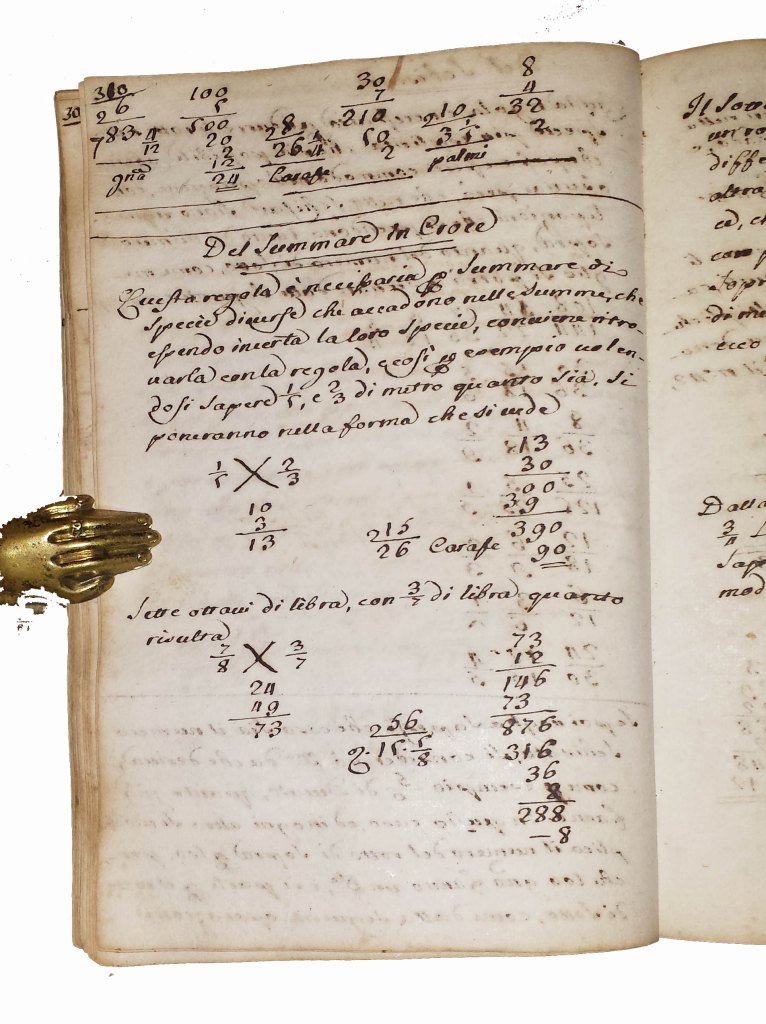 30
310 100 30 8
26 5 7 4
783 4 500 28 210 210 32
7 12 20 264 4/5 50 3 1/5 2
2 2
gna 12 Carafe palmi
24
Del Summare in Croce
Questa regola è necessaria p Summare di
specie diverse che accadono nelle Summe, che
essendo incerta la loro specie, conviene ritro-
varla con la regola, e così p esempio volen-
dosi sapere 1/5, e 2/3 di mitro quanto sia, si
poneranno nella forma che si vede
1/5 X 2/3
13
30
10 00
3 39
13 215 390
26 Carafe 90
Sette ottavi di libra, con 3/7 di libra quanto
risulta
7/8 X 3/7
73
12
24 146
49 73
73 256 876
15 5/8 316
36
8
288
8
Il Sou
un ro
diffe
altra
ce, c
con p
sopr
di me
ecco
Dalla
3/4
Sap
mod